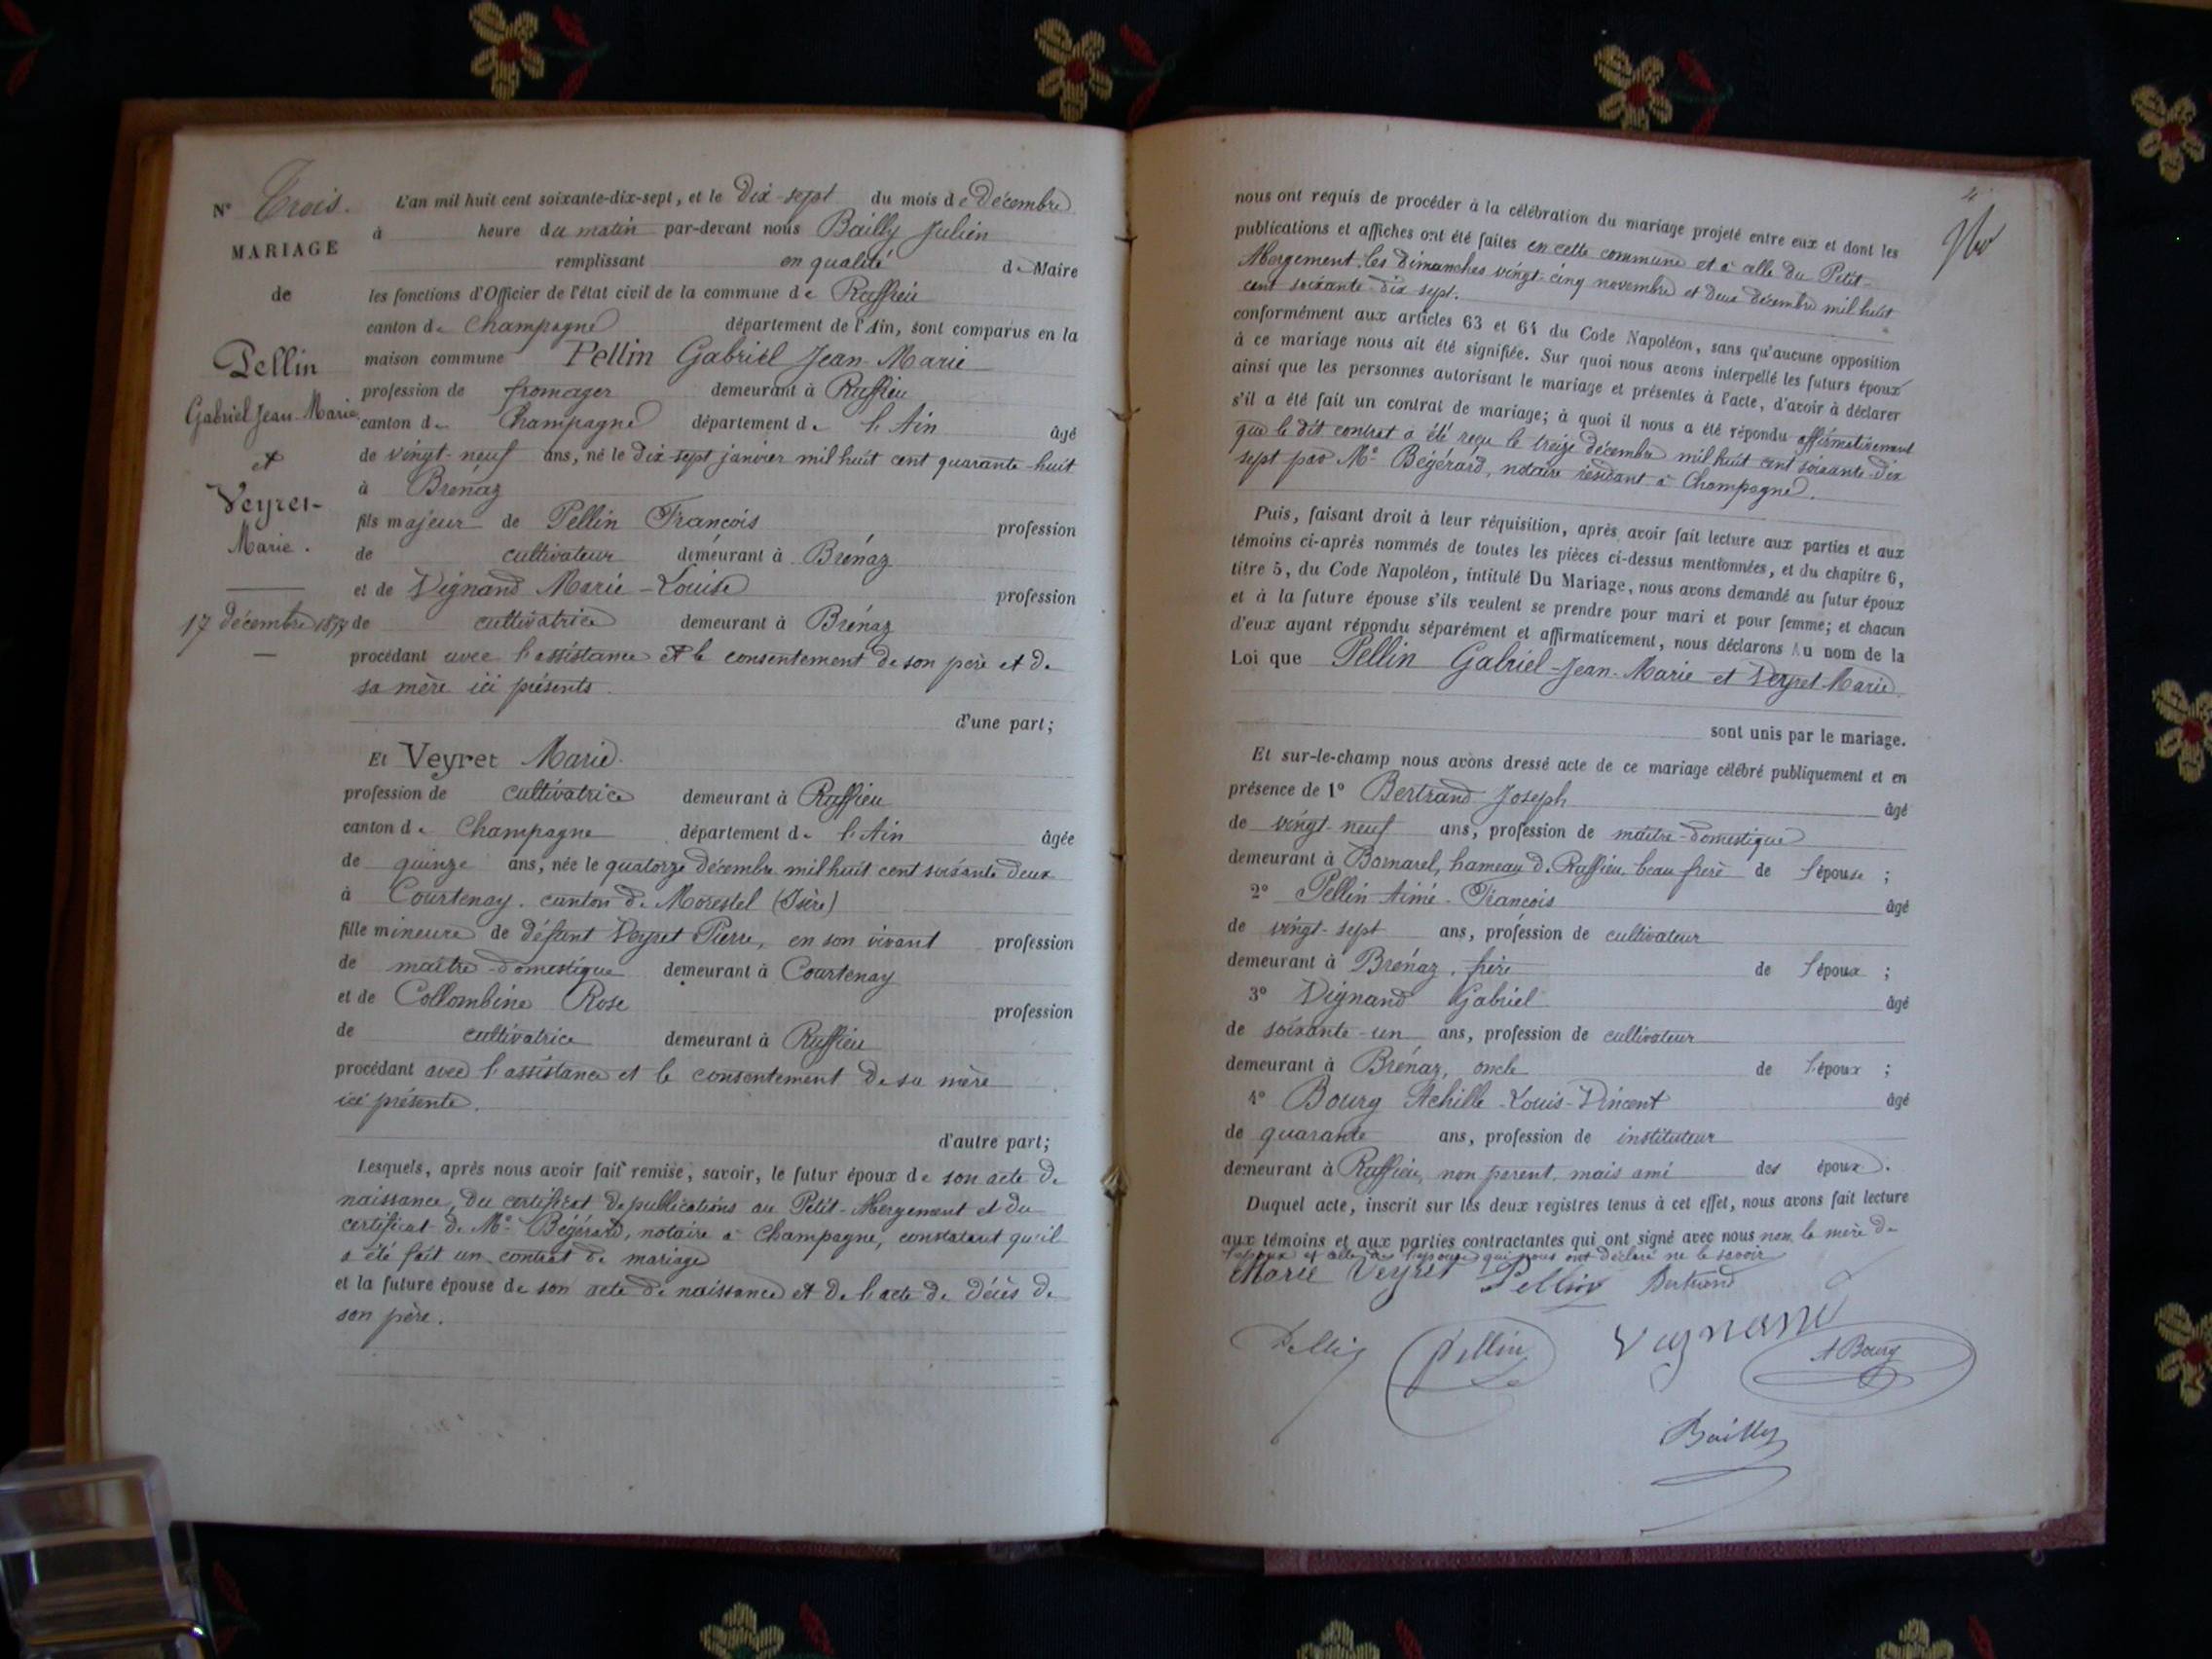 N° Trois.
MARIAGE
de
Pellin
Gabriel Jean-Marie
et
Veyret
Marie.
17 décembre 1877
L'an mil huit cent soixante-dix-sept, et le dix-sept du mois de décembre
à heure du matin par-devant nous Bailly Julien
remplissant en qualité de Maire
les fonctions d'Officier de l'état civil de la commune de Ruffieu
canton de Champagne département de l'Ain, sont comparus en la
maison commune Pellin Gabriel Jean-Marie
profession de fromager demeurant à Ruffieu
canton de Champagne département de l'Ain âgé
de vingt-neuf ans, né le dix-sept janvier mil huit cent quarante-huit
à Brénaz
fils majeur de Pellin François profession
de cultivateur demeurant à Brénaz
et de Vignand Marie-Louise profession
de cultivatrice demeurant à Brénaz
procédant avec l'assistance et le consentement de son père et de
sa mère ici présents.
d'une part;
Et Veyret Marie.
profession de cultivatrice demeurant à Ruffieu
canton de Champagne département de l'Ain âgée
de quinze ans, née le quatorze décembre mil huit cent soixante deux
à Courtenay, canton de Morestel (Isère)
fille mineure de défunt Veyret Pierre, en son vivant profession
de maître-domestique demeurant à Courtenay
et de Collombine Rose profession
de cultivatrice demeurant à Ruffieu
procédant avec l'assistance et le consentement de sa mère
ici présente.
d'autre part;
Lesquels, après nous avoir fait remise, savoir, le futur époux de son acte de
naissance, du certificat de publications au Petit-Abergement et du
certificat de Me Bégérard, notaire à Champagne, constatant qu'il
a été fait un contrat de mariage
et la future épouse de son acte de naissance et de l'acte de décès de
son père.
4
nous ont requis de procéder à la célébration du mariage projeté entre eux et dont les
publications et affiches ont été faites en cette commune et à celle du Petit-
Abergement, les dimanches vingt-cinq novembre et deux décembre mil huit
cent soixante-dix sept.
conformément aux articles 63 et 64 du Code Napoléon, sans qu'aucune opposition
à ce mariage nous ait été signifiée. Sur quoi nous avons interpellé les futurs époux
ainsi que les personnes autorisant le mariage et présentes à l'acte, d'avoir à déclarer
s'il a été fait un contrat de mariage; à quoi il nous a été répondu affirmativement
que le dit contrat a été reçu le treize décembre mil huit cent soixante-dix
sept par Me Bégérard, notaire résidant à Champagne.
Puis, faisant droit à leur réquisition, après avoir fait lecture aux parties et aux
témoins ci-après nommés de toutes les pièces ci-dessus mentionnées, et du chapitre 6,
titre 5, du Code Napoléon, intitulé Du Mariage, nous avons demandé au futur époux
et à la future épouse s'ils veulent se prendre pour mari et pour femme; et chacun
d'eux ayant répondu séparément et affirmativement, nous déclarons Au nom de la
Loi que Pellin Gabriel-Jean-Marie et Veyret Marie.
sont unis par le mariage.
Et sur-le-champ nous avons dressé acte de ce mariage célébré publiquement et en
présence de 1° Bertrand Joseph âgé
de vingt-neuf ans, profession de maître-domestique
demeurant à hameau de Ruffieu, beau frère de l'épouse ;
2° Pellin Aimé-François âgé
de vingt-sept ans, profession de cultivateur
demeurant à Brénaz, frère de l'époux ;
3° Vignand Gabriel âgé
de soixante-un ans, profession de cultivateur
demeurant à Brénaz, oncle de l'époux ;
4° Bourg Achille-Louis-Vincent âgé
de quarante ans, profession de instituteur
demeurant à Ruffieu, non parent, mais ami des époux.
Duquel acte, inscrit sur les deux registres tenus à cet effet, nous avons fait lecture
aux témoins et aux parties contractantes qui ont signé avec nous non la mère de
l'époux et celle de l'épouse qui nous ont déclaré ne le savoir
Marie Veyret Pellin Bertrand
Pellin Pellin Vignand A Bourg
Bailly